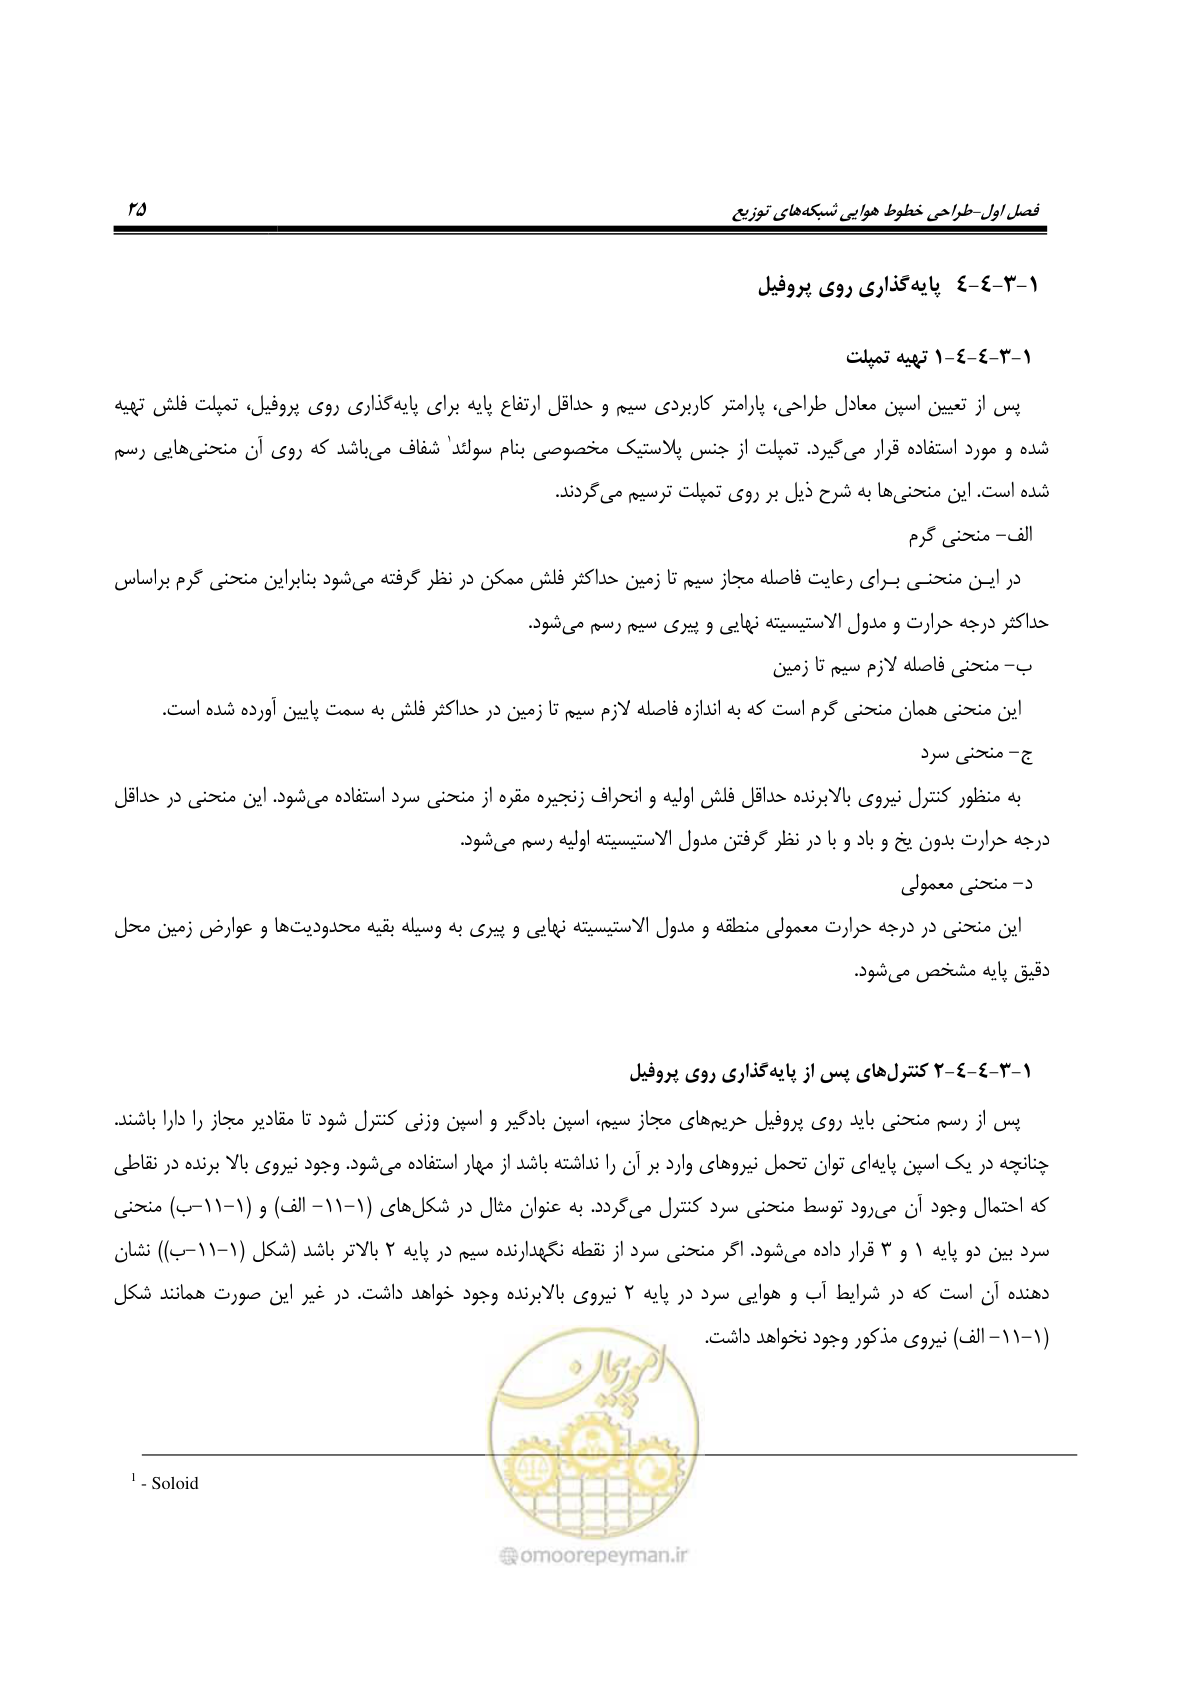 فصل اول-طراحی خطوط هوایی شبکه‌های توزیع ۲۵
۱-۳-٤-٤ پایه‌گذاری روی پروفیل
۱-۳-٤-٤-۱ تهیه تمپلت
پس از تعیین اسپن معادل طراحی، پارامتر کاربردی سیم و حداقل ارتفاع پایه برای پایه‌گذاری روی پروفیل، تمپلت فلش تهیه
شده و مورد استفاده قرار می‌گیرد. تمپلت از جنس پلاستیک مخصوصی بنام سولئد۱ شفاف می‌باشد که روی آن منحنی‌هایی رسم
شده است. این منحنی‌ها به شرح ذیل بر روی تمپلت ترسیم می‌گردند.
الف- منحنی گرم
در ایـن منحنـی بـرای رعایت فاصله مجاز سیم تا زمین حداکثر فلش ممکن در نظر گرفته می‌شود بنابراین منحنی گرم براساس
حداکثر درجه حرارت و مدول الاستیسیته نهایی و پیری سیم رسم می‌شود.
ب- منحنی فاصله لازم سیم تا زمین
این منحنی همان منحنی گرم است که به اندازه فاصله لازم سیم تا زمین در حداکثر فلش به سمت پایین آورده شده است.
ج- منحنی سرد
به منظور کنترل نیروی بالابرنده حداقل فلش اولیه و انحراف زنجیره مقره از منحنی سرد استفاده می‌شود. این منحنی در حداقل
درجه حرارت بدون یخ و باد و با در نظر گرفتن مدول الاستیسیته اولیه رسم می‌شود.
د- منحنی معمولی
این منحنی در درجه حرارت معمولی منطقه و مدول الاستیسیته نهایی و پیری به وسیله بقیه محدودیت‌ها و عوارض زمین محل
دقیق پایه مشخص می‌شود.
۱-۳-٤-٤-۲ کنترل‌های پس از پایه‌گذاری روی پروفیل
پس از رسم منحنی باید روی پروفیل حریم‌های مجاز سیم، اسپن بادگیر و اسپن وزنی کنترل شود تا مقادیر مجاز را دارا باشند.
چنانچه در یک اسپن پایه‌ای توان تحمل نیروهای وارد بر آن را نداشته باشد از مهار استفاده می‌شود. وجود نیروی بالا برنده در نقاطی
که احتمال وجود آن می‌رود توسط منحنی سرد کنترل می‌گردد. به عنوان مثال در شکل‌های (۱-۱۱- الف) و (۱-۱۱-ب) منحنی
سرد بین دو پایه ۱ و ۳ قرار داده می‌شود. اگر منحنی سرد از نقطه نگهدارنده سیم در پایه ۲ بالاتر باشد (شکل (۱-۱۱-ب)) نشان
دهنده آن است که در شرایط آب و هوایی سرد در پایه ۲ نیروی بالابرنده وجود خواهد داشت. در غیر این صورت همانند شکل
(۱-۱۱- الف) نیروی مذکور وجود نخواهد داشت.
امور پیمان
1 - Soloid
@omoorepeyman.ir